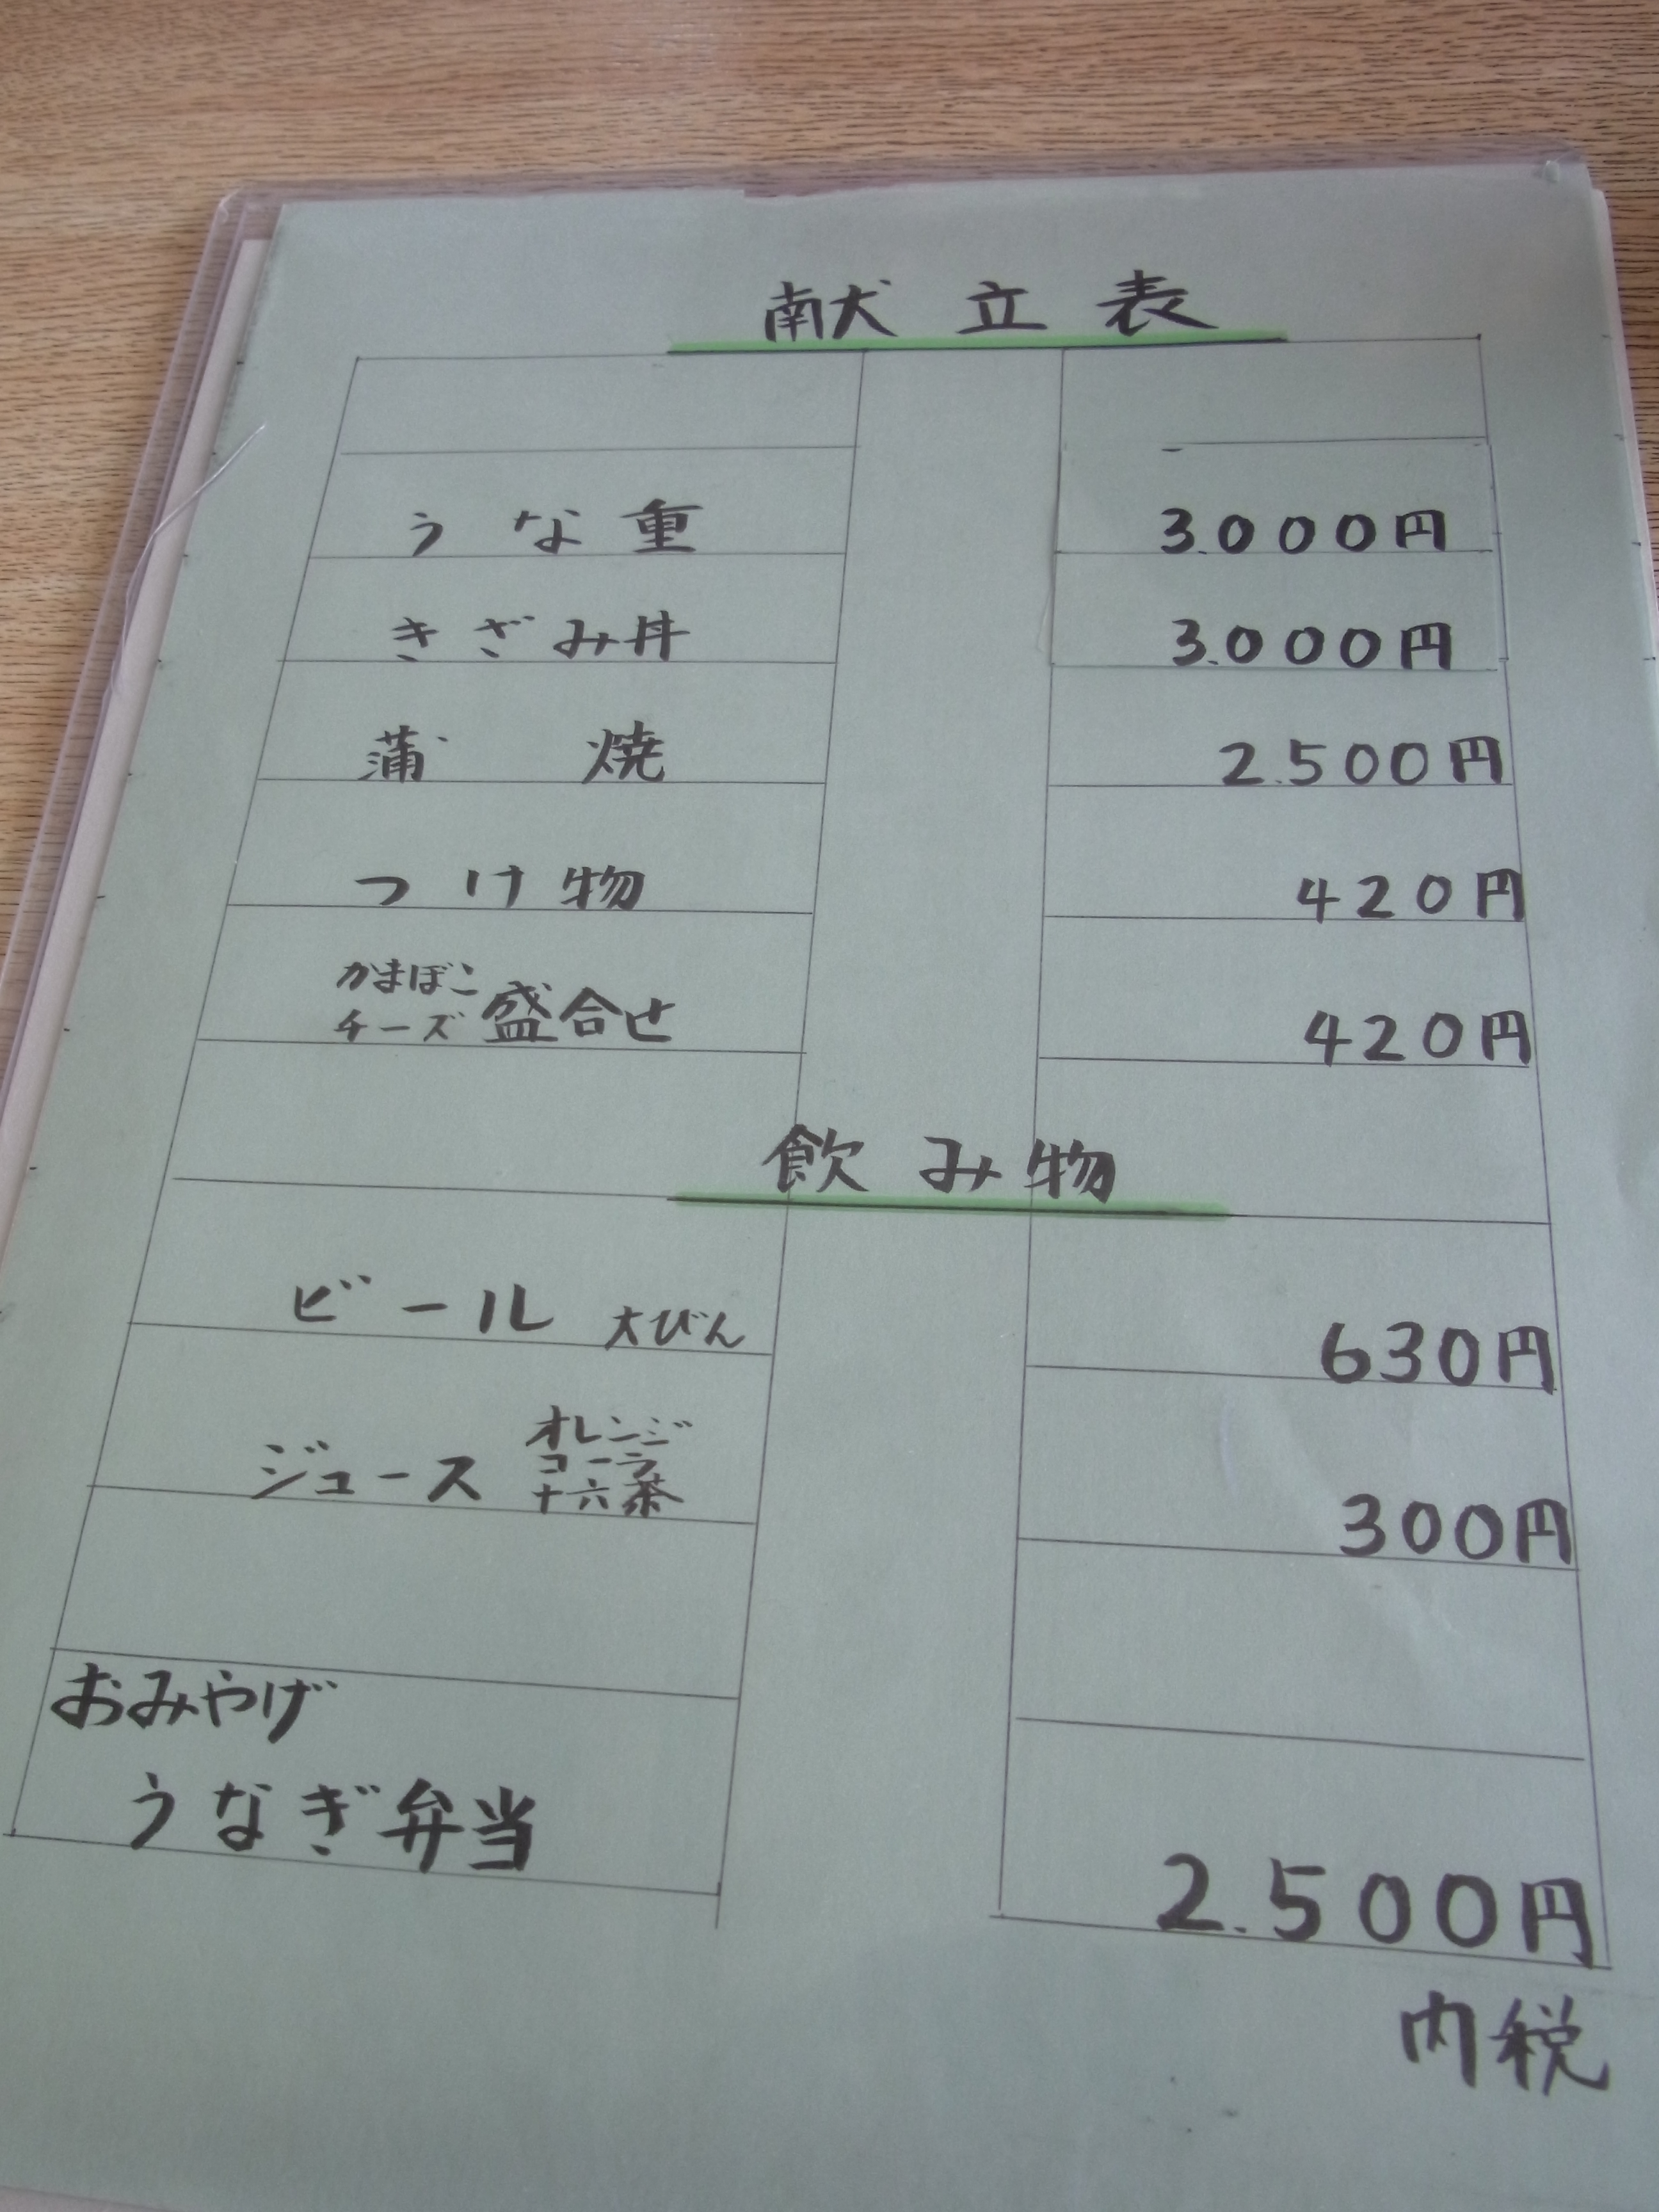 献立表
うな重 3.000円
きざみ丼 3.000円
蒲焼 2.500円
つけ物 420円
かまぼこ
チーズ 盛合せ 420円
飲み物
ビール 大びん 630円
ジュース オレンジ
コーラ
十六茶 300円
おみやげ
うなぎ弁当 2.500円
内税